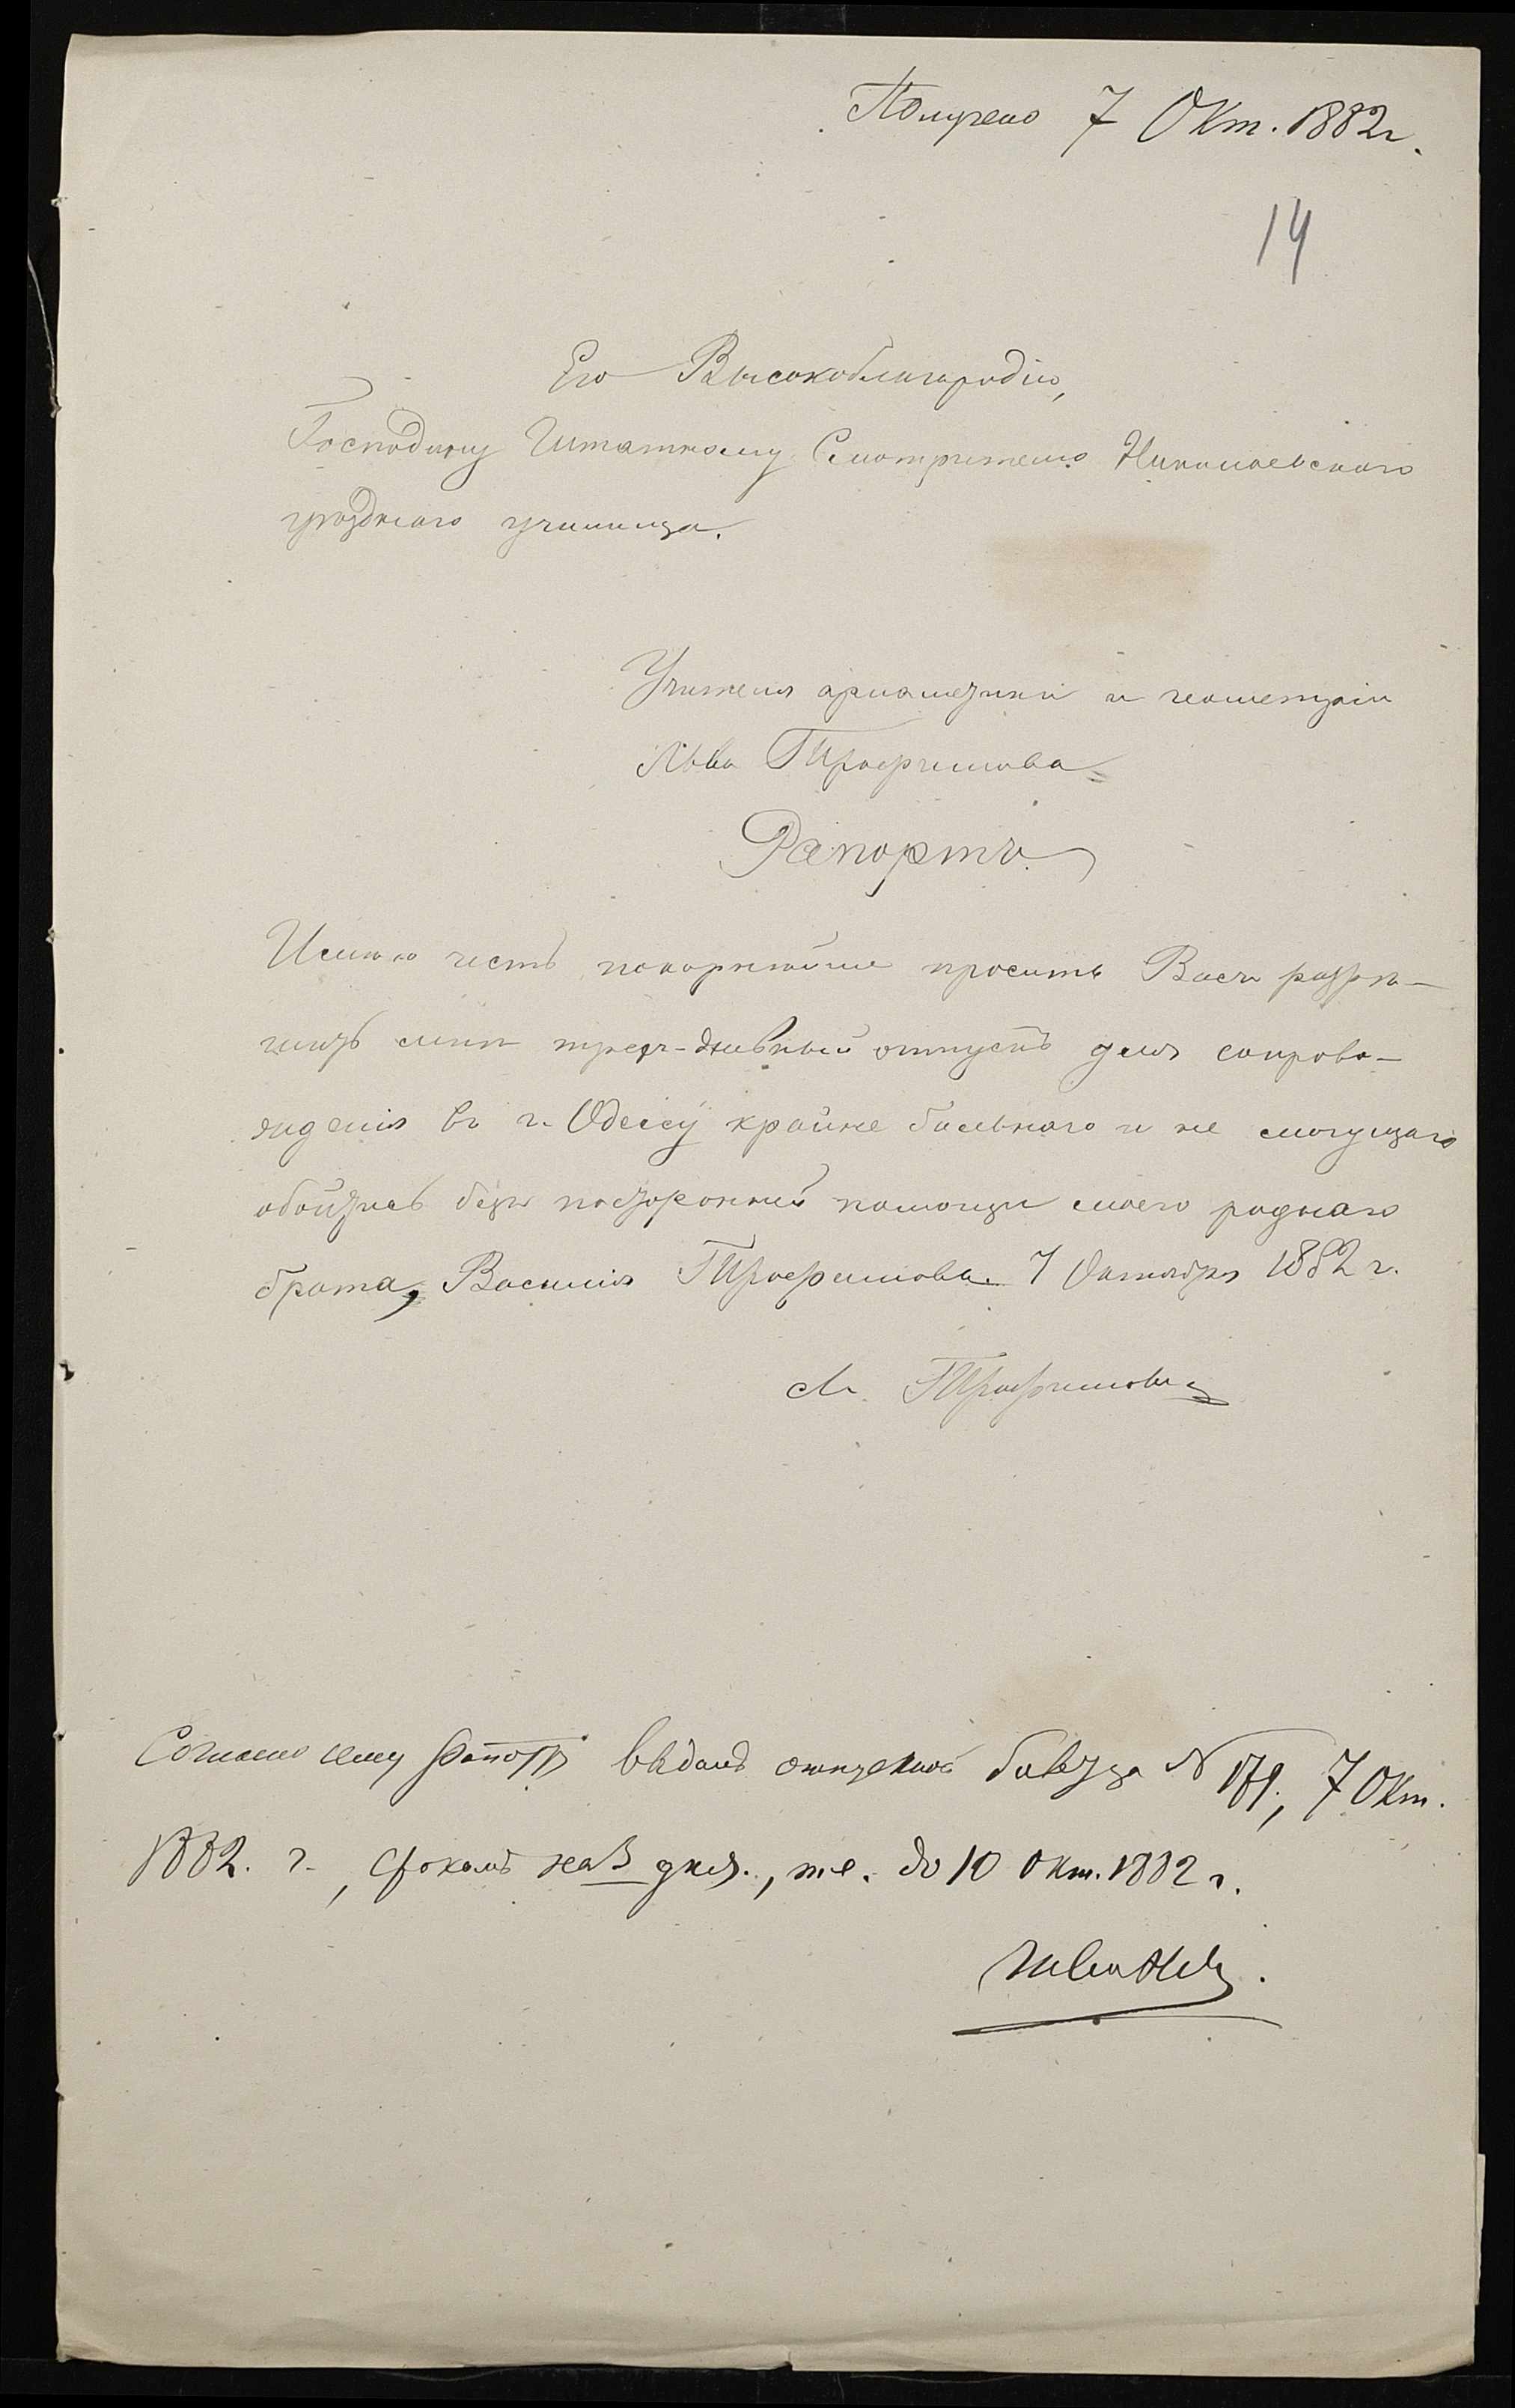 Получено 7 Окт. 1882 г.
14
Его Высокоблагородію,
Господину Штатному Смотрителю Николаевскаго
уѣзднаго училища.
Учителя ариѳметики и геометріи
Льва Трофимова
Рапортъ.
Имѣю честь покорнѣйше просить Васъ разрѣ-
шить мнѣ трехъ-дневный отпускъ для сопрово-
жденія въ г. Одессу крайне больнаго и не могущаго
обойтись безъ посторонней помощи моего роднаго
брата, Василія Трофимова. 7 Октября 1882 г.
Л. Трофимовъ
Согласно сему рапорту выданъ отпускной билетъ за № 179, 7 Окт.
1882. г., срокомъ на 3 дня., т. е. до 10 Окт. 1882 г.